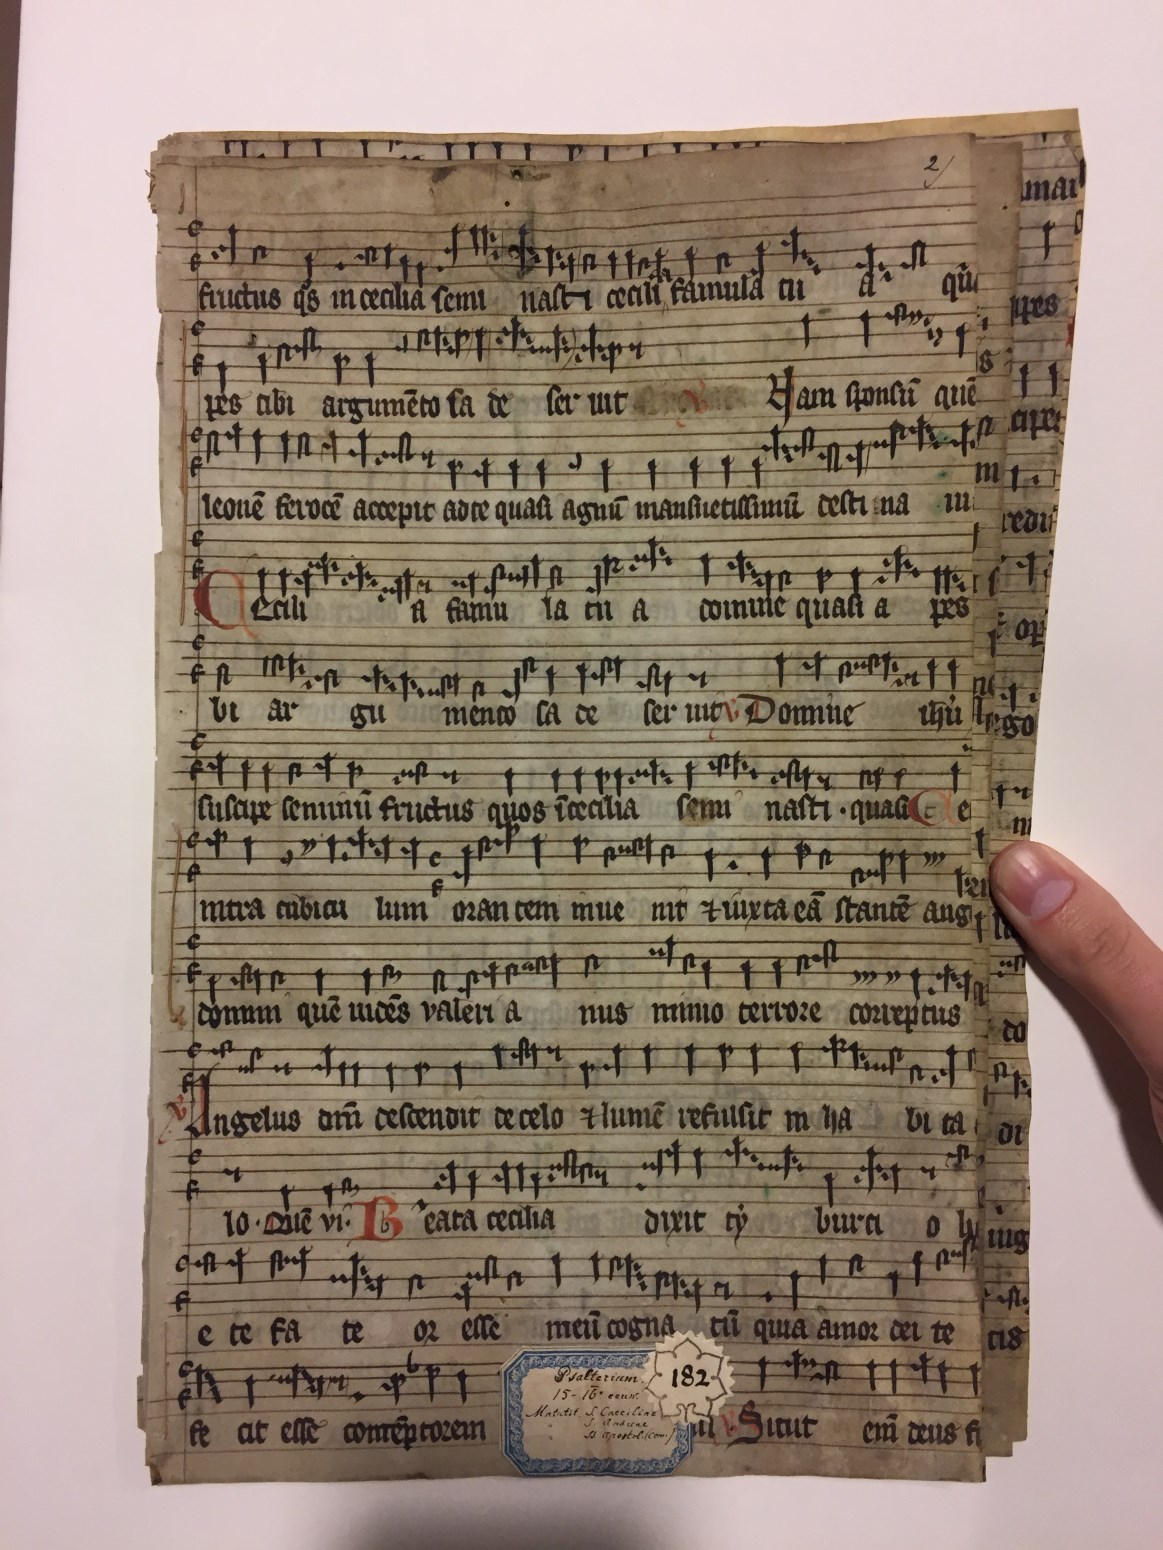 2)
fructus q̄s in cecilia semi nasti cecilia famula tu a qua
pes tibi argumēto sa de ser uit ℣ Nam sponsū quē
leonē ferocē accepit ad te quasi agnū mansuetissimū desti na ui
Cecili a famu la tu a domine quasi a pes
bi ar gu mento sa de ser uit ℣ Domine ihū
suscipe seminū fructus quos ī cecilia semi nasti · quasi Ce
intra cubicu lum oran tem inue nit ⁊ iuxta eā stantē ang
domini quē uidēs valeri a nus nimio terrore correptus
℣ Angelus dn̄i descendit de celo ⁊ lumē refulsit in ha bi ta
lo · Quē vi · Beata cecilia dixit ty burti o
e te fa te or esse meū cogna tū quia amor dei te
fe cit esse contēptorem ℣ Sicut eni deus
Psalterium.
15-16e eeuw.
Matutit. S. Caeciliae
S. Andreae
SS. Apostol. (com.)
182
mai
cipet
redu
go
do
di
iug
tis